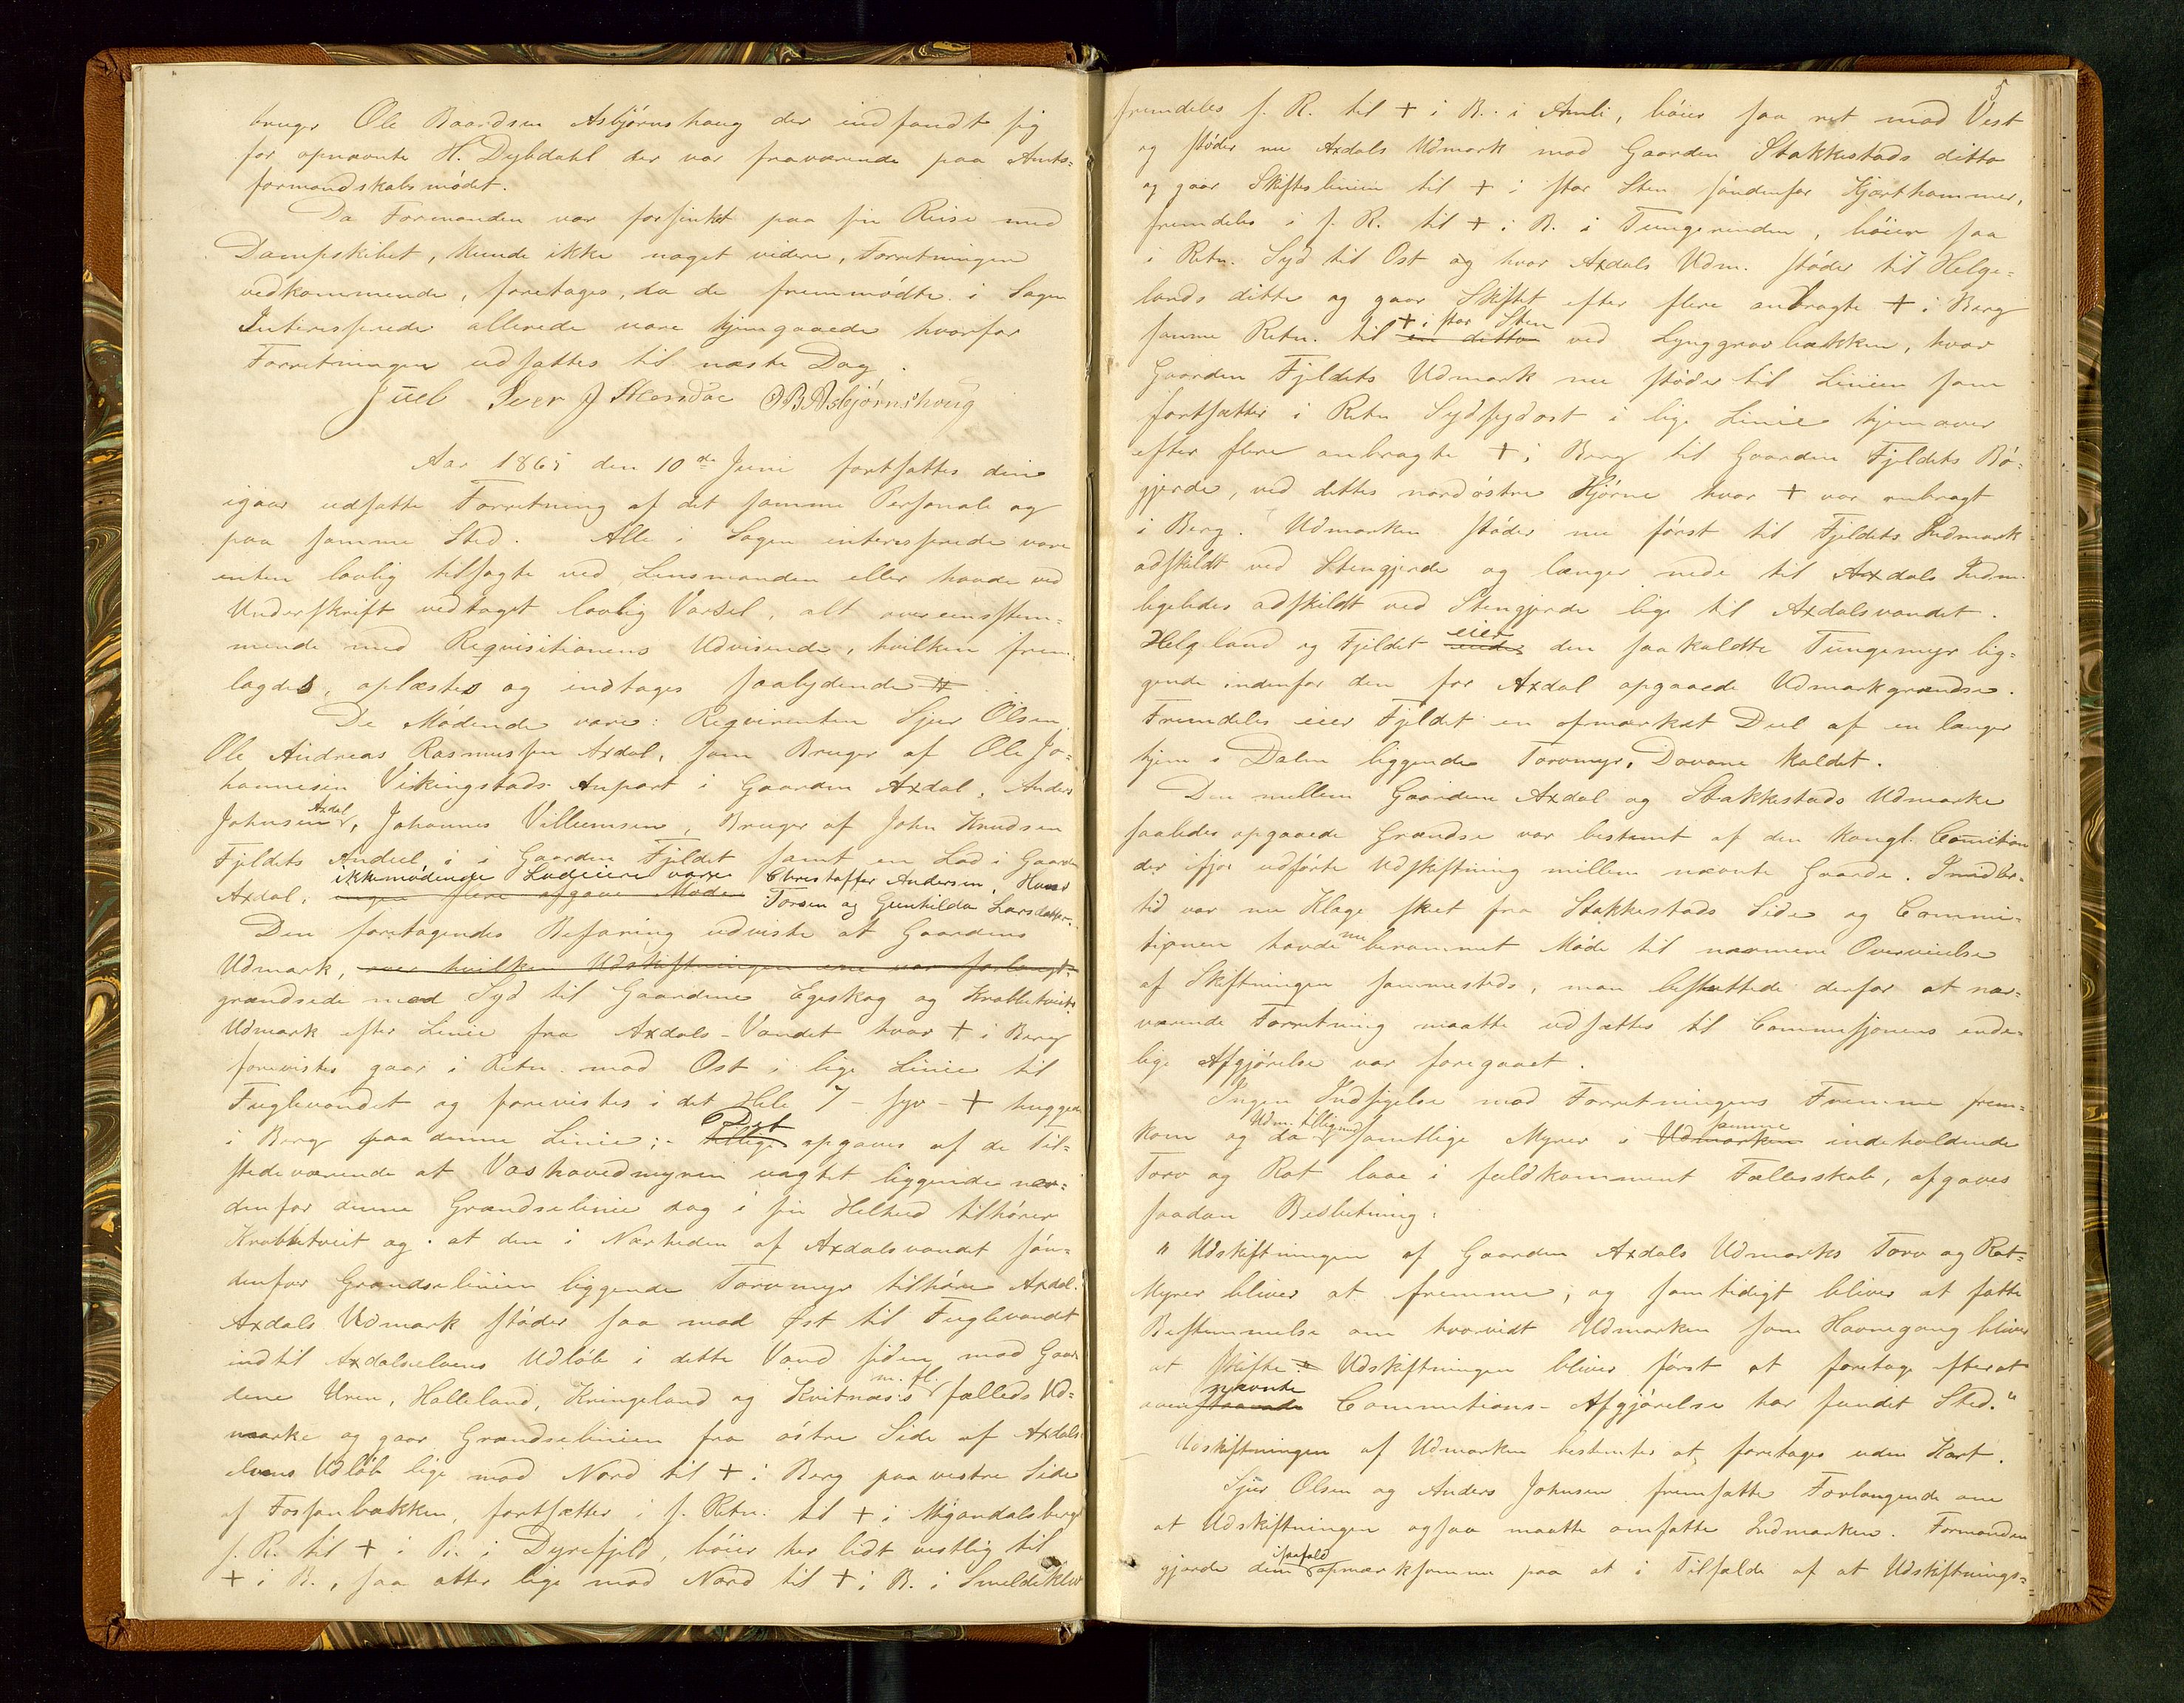 bruger Ole Baardsen Asbjörnshaug der indfandt sig
for opnævnte H. Dybdahl der var fraværende paa Amts-
formandskabsmödet.
Da Formanden var forsinket paa sin Reise med
Dampskibet, kunde ikke noget videre, Forretningen
vedkommende, foretages, da de fremmödte i Sagen
Interesserede allerede vare hjemgaaede hvorfor
Forretningen udsattes til næste Dag.
Juel Iver J OBAsbjørnshoug
Aar 1865 den 10de Juni fortsattes den
igaar udsatte Forretning af det samme Personale og
paa samme Sted. Alle i Sagen interesserede vare
enten lovlig tilsagte ved Lensmanden eller havde ved
Underskrift vedtaget lovlig Varsel, alt overeensstem-
mende med Reqvisitionens Udvisende, hvilken frem-
lagdes, oplæstes og indtages saalydende #
De Mödende vare: Reqvirenten Sjur Olsen,
Ole Andreas Rasmussen Axdal, som Bruger af Ole Jo-
hannesen Vikingstads Anpart i Gaarden Axdal, Anders
Johnsen Axdal, Johannes Villumsen, Bruger af John Knudsen
Fjeldets Andeel i Gaarden Fjeldet samt en Lod i Gaarden
Axdal, ingen flere afgave Möde ikkemödende Lodeiere vare Christoffer Andersen, Hans
Torsen og Gunhilda Larsdatter.
Den foretagendes Befaring udviste at Gaardens
Udmark, over hvilken Udskiftningen ene var forlangt,
grændsede mod Syd til Gaardene Egeskog og Krabbetveits
Udmark efter Linie fra Axdals-Vandet hvor + i Berg
forevistes gaar i Retn. mod Ost i lige Linie til
Fuglevandet og forevistes i det Hele 7 - syv - + huggede
i Berg paa denne Linie; - Tillige Det opgaves af de Til-
stedeværende at Vashovedmyren uagtet liggende nor-
denfor denne Grændselinie dog i sin Helhed tilhörer
Krabbetveit og at den i Nærheden af Axdalsvandet sön-
denfor Grændselinien liggende Torvmyr tilhörer Axdal.
Axdals Udmark stöder saa mod Øst til Fuglevandt
indtil Axdalselvens Udlöb i dette Vand siden mod Gaar
dene Uren, Halleland, Kringeland og Kvitnæs's m. fl. fælleds Ud-
marke og gaar Grændselinien fra östre Side af Axdals
elvens Udlöb lige mod Nord til + i Berg paa vestre Side
af Fossanbækken, fortsætter i s. Retn. til + i Migandalsberget
s. R. til + i B. i Dyrefjeld, böier her lidt vestlig til
+ i B., saa atter lige mod Nord til + i B. i Smeldeklev
5
fremdeles s. R. til + i B. i Amli, böier saa ret mod Vest
og stöder nu Axdals Udmark mod Gaarden Stakkestads ditto
og gaar Skiftelinien til + i stor Sten söndenfor Hjorthammer,
fremdeles i s. R. til + i B. i Tungerinden, böier saa
i Retn. Syd til Ost og hvor Axdals Udm. stöder til Helge-
lands ditto og gaar Skiftet efter flere anbragte + i Berg
samme Retn. til en ditto + i stor Sten ved Lynggravbækken, hvor
Gaarden Fjeldets Udmark nu stöder til Linien som
fortsætter i Retn Sydsydost i lige Linie hjemover
efter flere anbragte + i Berg til Gaarden Fjeldets Bö-
gjerde, ved dettes nordöstre Hjörne hvor + var anbragt
i Berg. Udmarken stöder nu först til Fjeldets Indmark
adskildt ved Stengjerde og længer nede til Axdals Indm.
ligeledes adskildt ved Stengjerde lige til Axdalsvandet.
Helgeland og Fjeldet eier den saakaldte Tungemyr lig-
gende indenfor den for Axdal opgaaede Udmarkgrændse.
Fremdeles eier Fjeldet en opmærket Deel af en længer
hjem i Dalen liggende Torvmyr, Dovane kaldet.
Den mellem Gaardene Axdal og Stakkestads Udmarke
saaledes opgaaede Grændse var bestemt af den kongl. Comition
der ifjor udförte Udskiftning mellem nævnte Gaarde. Imidler-
tid var nu Klage skeet fra Stakkestads Side og Commi-
tionen havde nu berammet Möde til nærmere Overveielse
af Skiftningen sammesteds, man besluttede derfor at nær-
værende Forretning maatte udsættes til Commissjonens ende-
lige Afgjörelse var foregaaet.
Ingen Indsigelse mod Forretningens Fremme frem-
kom og da Udm. tilligemed samtlige Myrer i Udmarken samme indeholdende
Torv og Rot laae i fuldkomment Fællesskab, afgaves
saadan Beslutning:
" Udskiftningen af Gaarden Axdals Udmarks Torv og Rot-
Myrer bliver at fremme, og samtidigt bliver at fatte
Bestemmelse om hvorvidt Udmarken som Havnegang bliver
at skifte. Udskiftningen bliver först at foretage efterat
nævnte Commitions-Afgjörelse har fundet Sted."
Udskiftningen af Udmarken bestemtes at foretages uden Kart.
Sjur Olsen og Anders Johnsen fremsatte Forlangende om
at Udskiftningen ogsaa maatte omfatte Indmarken. Formanden
gjorde dem isaafald opmærksomme paa at i Tilfælde af at Udskiftnings-